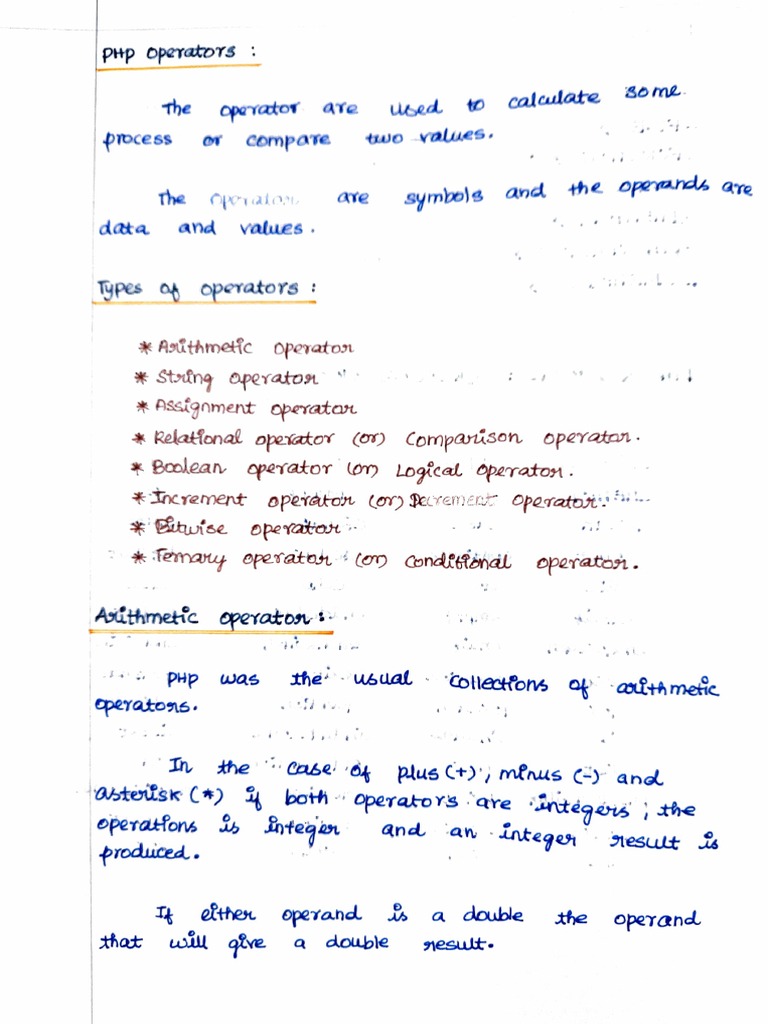 PHP operators :
The operator are used to calculate some
process or compare two values.
The operator are symbols and the operands are
data and values.
Types of operators :
* Arithmetic operator
* String operator
* Assignment operator
* Relational operator (or) Comparison operator.
* Boolean operator (or) Logical operator.
* Increment operator (or) Decrement operator.
* Bitwise operator
* Ternary operator (or) conditional operator.
Arithmetic operator :
PHP was the usual collections of arithmetic
operators.
In the case of plus (+), minus (-) and
asterisk (*) if both operators are integers, the
operations is integer and an integer result is
produced.
If either operand is a double the operand
that will give a double result.